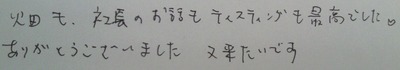 畑も、社長のお話もテイスティングも最高でした。
ありがとうございました 又来たいです